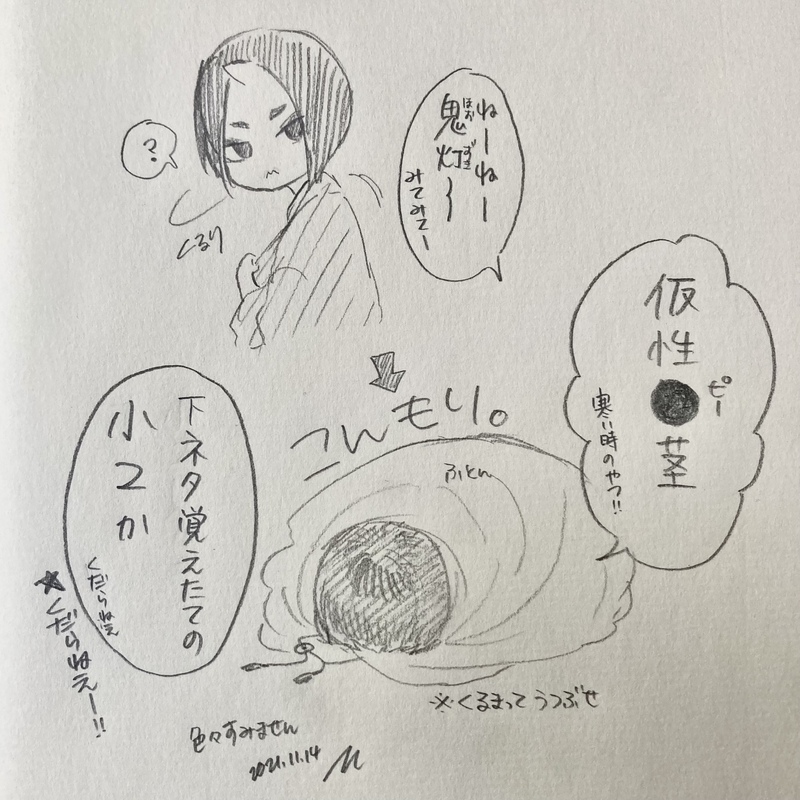 ねーねー
鬼灯〜
ほおずき
みてみてー
?
くるり
仮性●茎
ピー
寒い時のやつ!!
こんもり。
ふとん
下ネタ覚えたての
小2か
くだらねぇ
★くだらねえー!!
※くるまってうつぶせ
色々すみません
2021.11.14